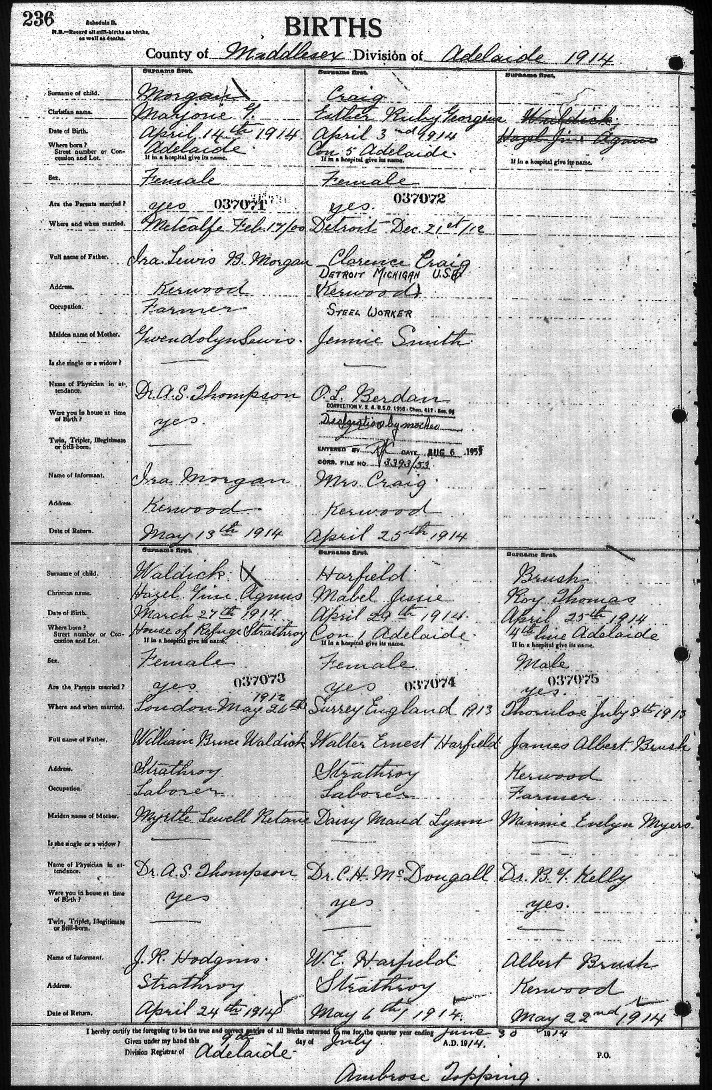 236
Schedule B.
N.B.—Record all still-births as births,
as well as deaths.
BIRTHS
County of Middlesex Division of Adelaide 1914
Surname first. Surname first. Surname first.
Surname of child. Morgan Craig Waldick
Christian name. Marjorie Y. Esther Ruby Georgina Hazel Jini Agnus
Date of Birth. April 14th 1914 April 3rd 1914
Where born? Adelaide Con 5 Adelaide.
Street number or Concession and Lot. If in a hospital give its name. If in a hospital give its name. If in a hospital give its name.
Sex. Female Female
Are the Parents married? yes 037071 yes. 037072
Where and when married. Metcalfe Feb. 17/00 Detroit Dec. 21st/12
Full name of Father. Ira Lewis B. Morgan Clarence Craig
DETROIT MICHIGAN U.S.A
Address. Kerwood (Kerwood)
Occupation. Farmer STEEL WORKER
Maiden name of Mother. Gwendolyn Lewis. Jennie Smith
Is she single or a widow? — —
Name of Physician in attendance. Dr. A.S. Thompson O.L. Berdan
CORRECTION V.S.A. R.S.O. 1950 - Chap. 412 - Sec.
Were you in house at time of Birth? yes. Declaration by mother
Twin, Triplet, Illegitimate or Still-born. — ENTERED BY DATE AUG 6 1953
CORR. FILE NO. 3393/53
Name of Informant. Ira Morgan Mrs. Craig.
Address. Kerwood Kerwood
Date of Return. May 13th 1914 April 25th 1914
Surname first. Surname first. Surname first.
Surname of child. Waldick. Harfield Brush
Christian name. Hazel Jini Agnus Mabel Jessie Roy Thomas
Date of Birth. March 27th 1914. April 29th 1914. April 25th 1914
Where born? House of Refuge Strathroy Con 1 Adelaide. 4th line Adelaide
Street number or Concession and Lot. If in a hospital give its name. If in a hospital give its name. If in a hospital give its name.
Sex. Female Female Male
Are the Parents married? yes 037073 yes 037074 yes. 037075
Where and when married. London May 26th 1912 Surrey England 1913 Thornloe July 8th 1913
Full name of Father. William Bruce Waldick Walter Ernest Harfield James Albert Brush
Address. Strathroy Strathroy Kerwood
Occupation. Laborer Laborer Farmer
Maiden name of Mother. Myrtle Sewell Daisy Maud Lynn Minnie Evelyn Myers.
Is she single or a widow? — — —
Name of Physician in attendance. Dr. A.S. Thompson Dr. C.H. McDougall Dr. B.Y. Kelly
Were you in house at time of Birth? yes yes yes.
Twin, Triplet, Illegitimate or Still-born. — — —
Name of Informant. J.R. Hodgins. W.E. Harfield Albert Brush
Address. Strathroy Strathroy Kerwood
Date of Return. April 24th 1914 May 6th 1914 May 22nd 1914
I hereby certify the foregoing to be the true and correct entries of all Births returned to me for the quarter year ending June 30 1914
Given under my hand this 9th day of July A.D. 1914.
Division Registrar of Adelaide. P.O.
Ambrose Topping.